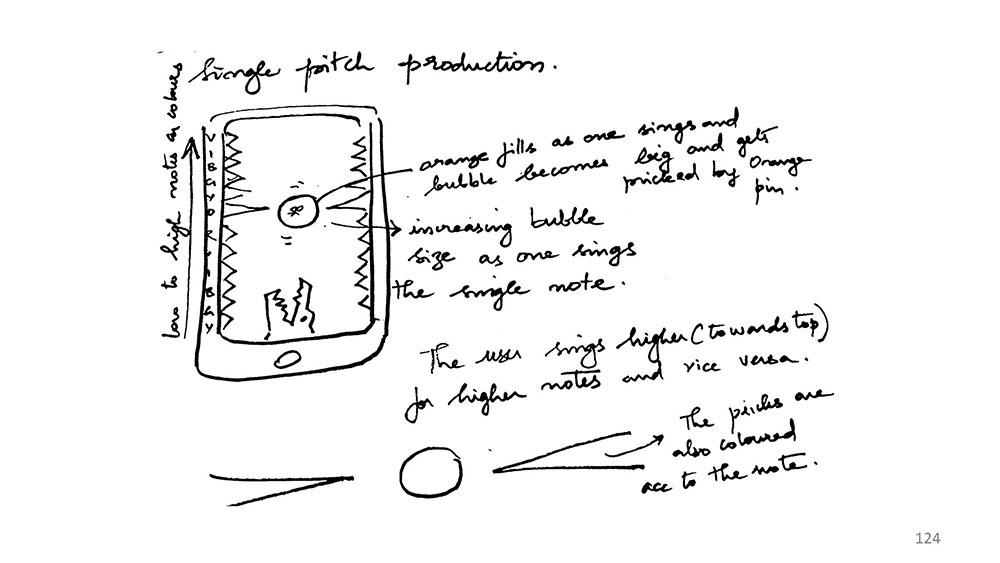 Single pitch production.
Low to high notes as colours
V
I
B
G
Y
O
R
V
I
B
G
Y
orange fills as one sings and
bubble becomes big and gets
pricked by Orange
pin.
increasing bubble
size as one sings
the single note.
The user sings higher (towards top)
for higher notes and vice versa.
The pricks are
also coloured
acc to the note.
124